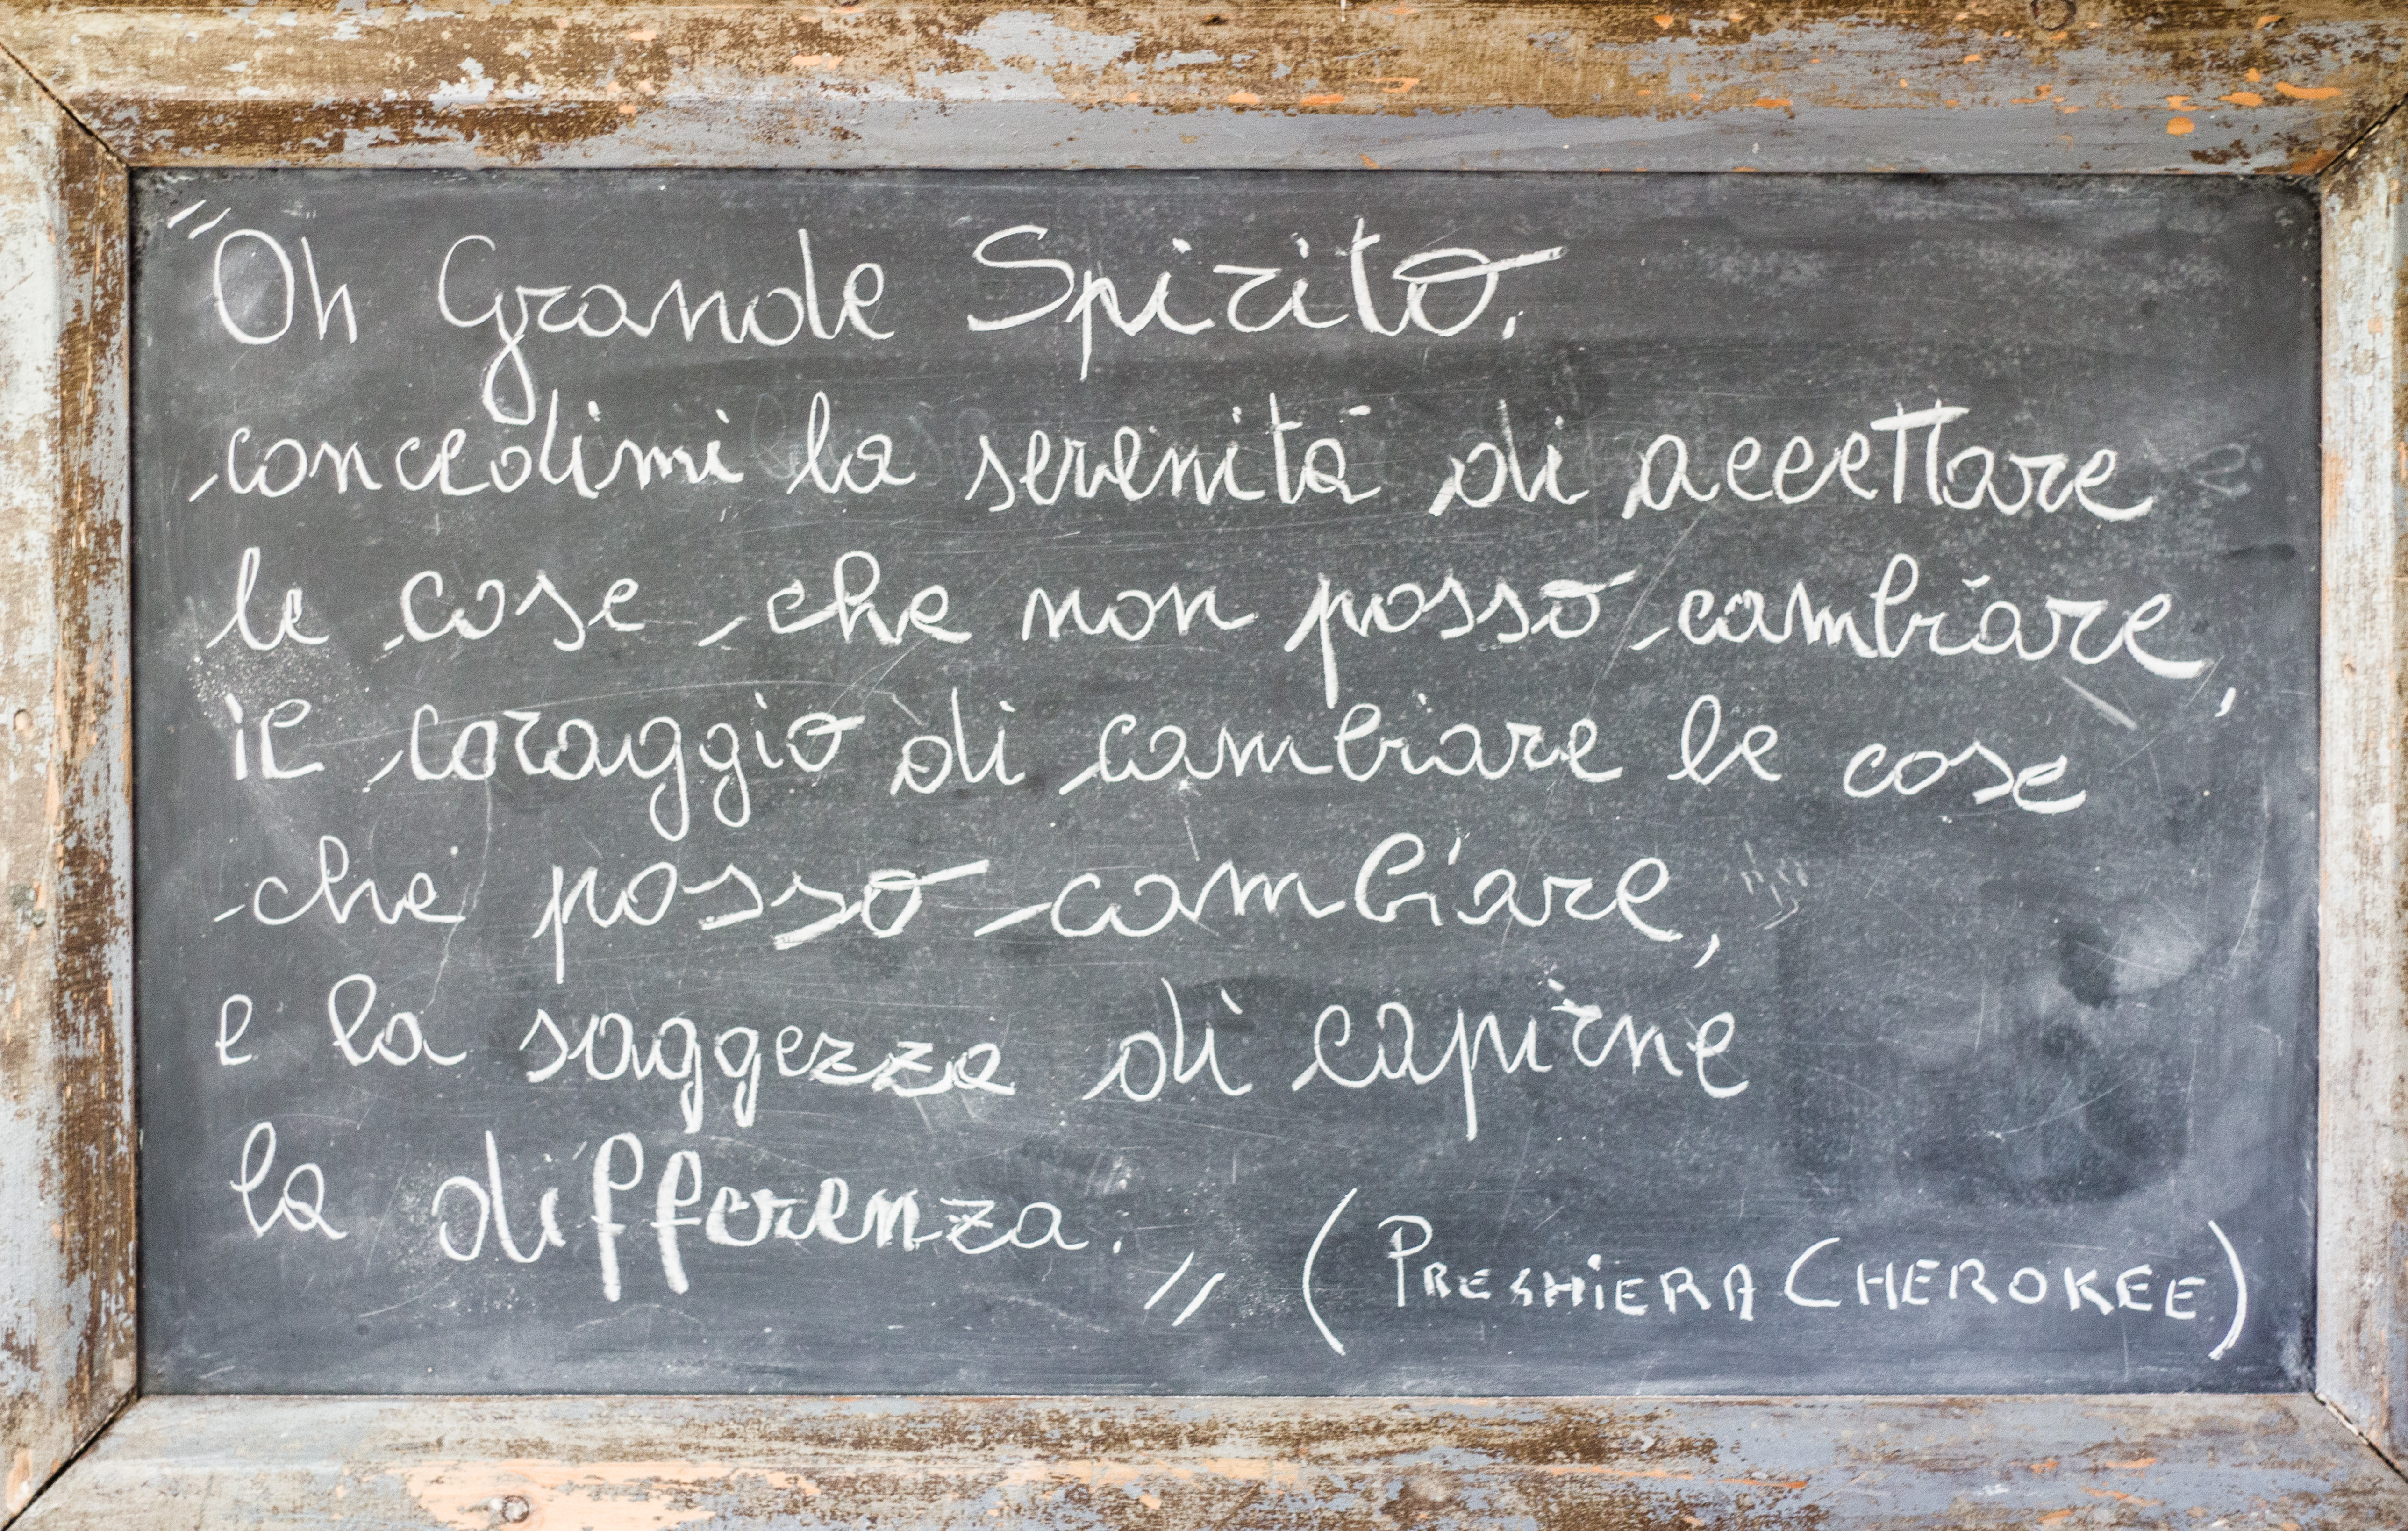 "Oh Grande Spirito,
concedimi la serenità di accettare
le cose che non posso cambiare,
il coraggio di cambiare le cose
che posso cambiare,
e la saggezza di capirne
la differenza." (PREGHIERA CHEROKEE)